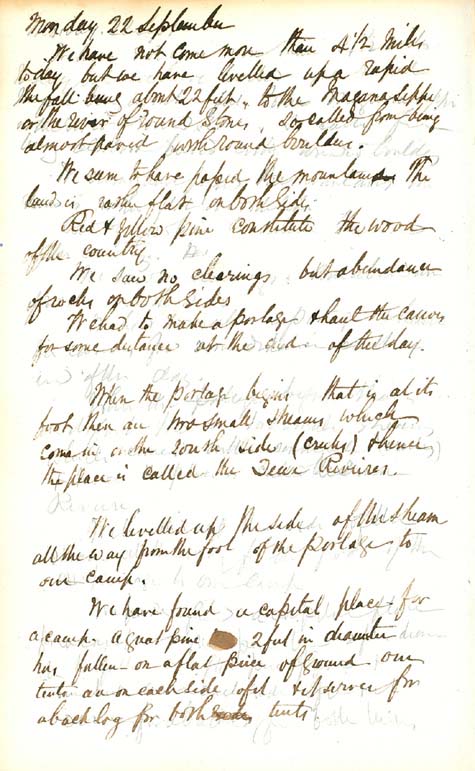 Monday 22 September
We have not come more than 4 1/2 Miles
today but we have levelled up a rapid
the fall being about 22 feet, to the Magana Seppi
or the river of round Stones, so called from being
almost paved with round boulders.
We seem to have passed the mountains The
land is rather flat on both Sides
Red & yellow pine constitute the wood
of the country.
We saw no clearings, but abundance
of rocks on both Sides
We had to make a portage & haul the canoes
for some distance at the end of the day.
When the portage begins that is at its
foot there are two small streams which
come in on the South side (creeks) & hence
the place is called the Deux Rivieres.
We levelled up the side of the stream
all the way from the foot of the portage to
our camp.
We have found a capital place for
a camp. a great pine 2 feet in diameter
has fallen on a flat piece of ground our
tents are on each side of it & it serves for
a back log for both tents